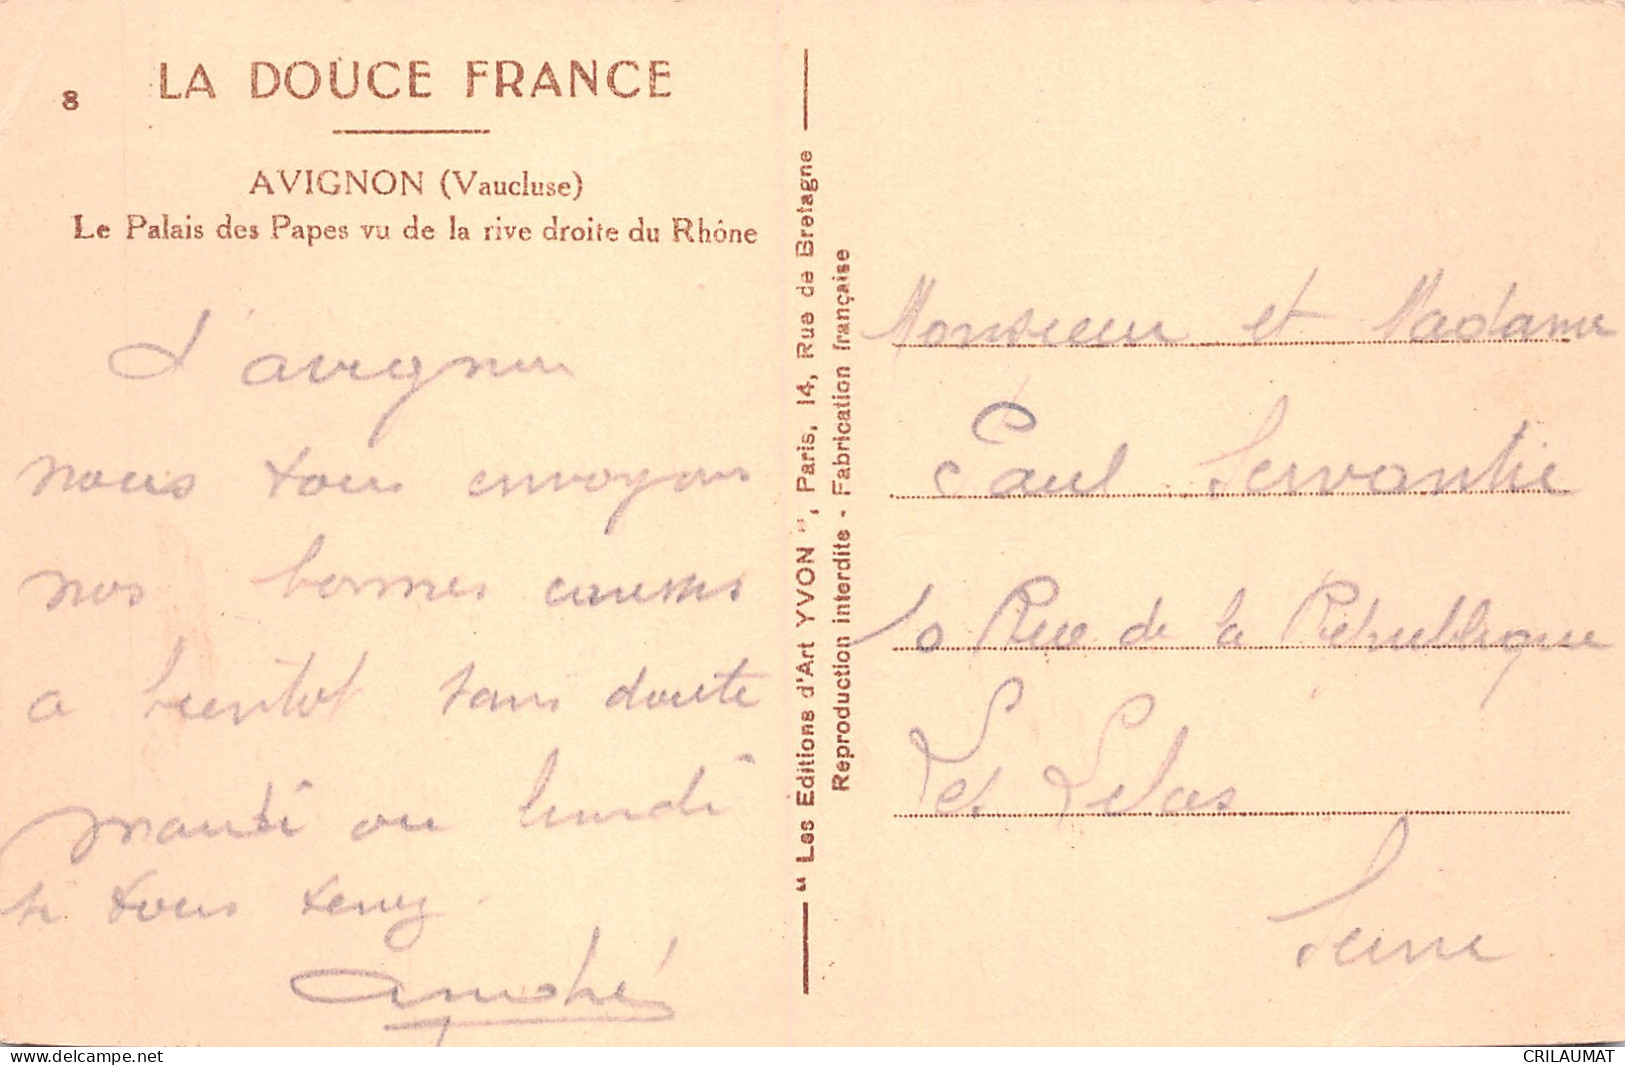 8
LA DOUCE FRANCE
AVIGNON (Vaucluse)
Le Palais des Papes vu de la rive droite du Rhône
d'avignon
nous tous envoyons
nos bonnes
a bientot sans doute
mardi ou lundi
si vous venez.
André
" Les Editions d'Art YVON ", Paris, 14, Rue de Bretagne
Reproduction interdite - Fabrication française
Monsieur et Madame
Paul Servantie
10 Rue de la République
Les Lilas
Seine
www.delcampe.net
CRILAUMAT